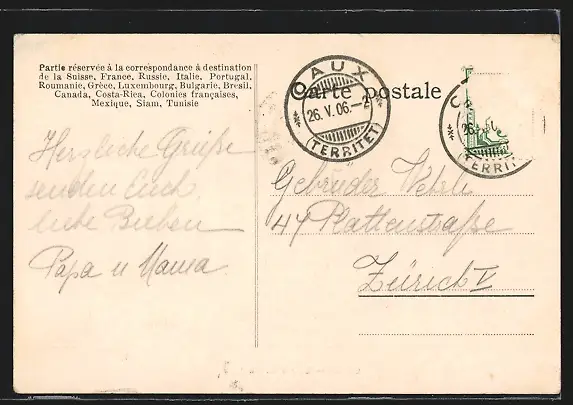 Partie réservée à la correspondance à destination
de la Suisse, France, Russie, Italie, Portugal,
Roumanie, Grèce, Luxembourg, Bulgarie, Bresil,
Canada, Costa-Rica, Colonies françaises,
Mexique, Siam, Tunisie
Carte postale
CAUX
26.V.06.-2
(TERRITET)
CA
26.
(TERRIT
Herzliche Grüße
senden Euch
liebe Buben
Papa u Mama
Gebrüder Wehrli
47 Plattenstraße
Zürich V